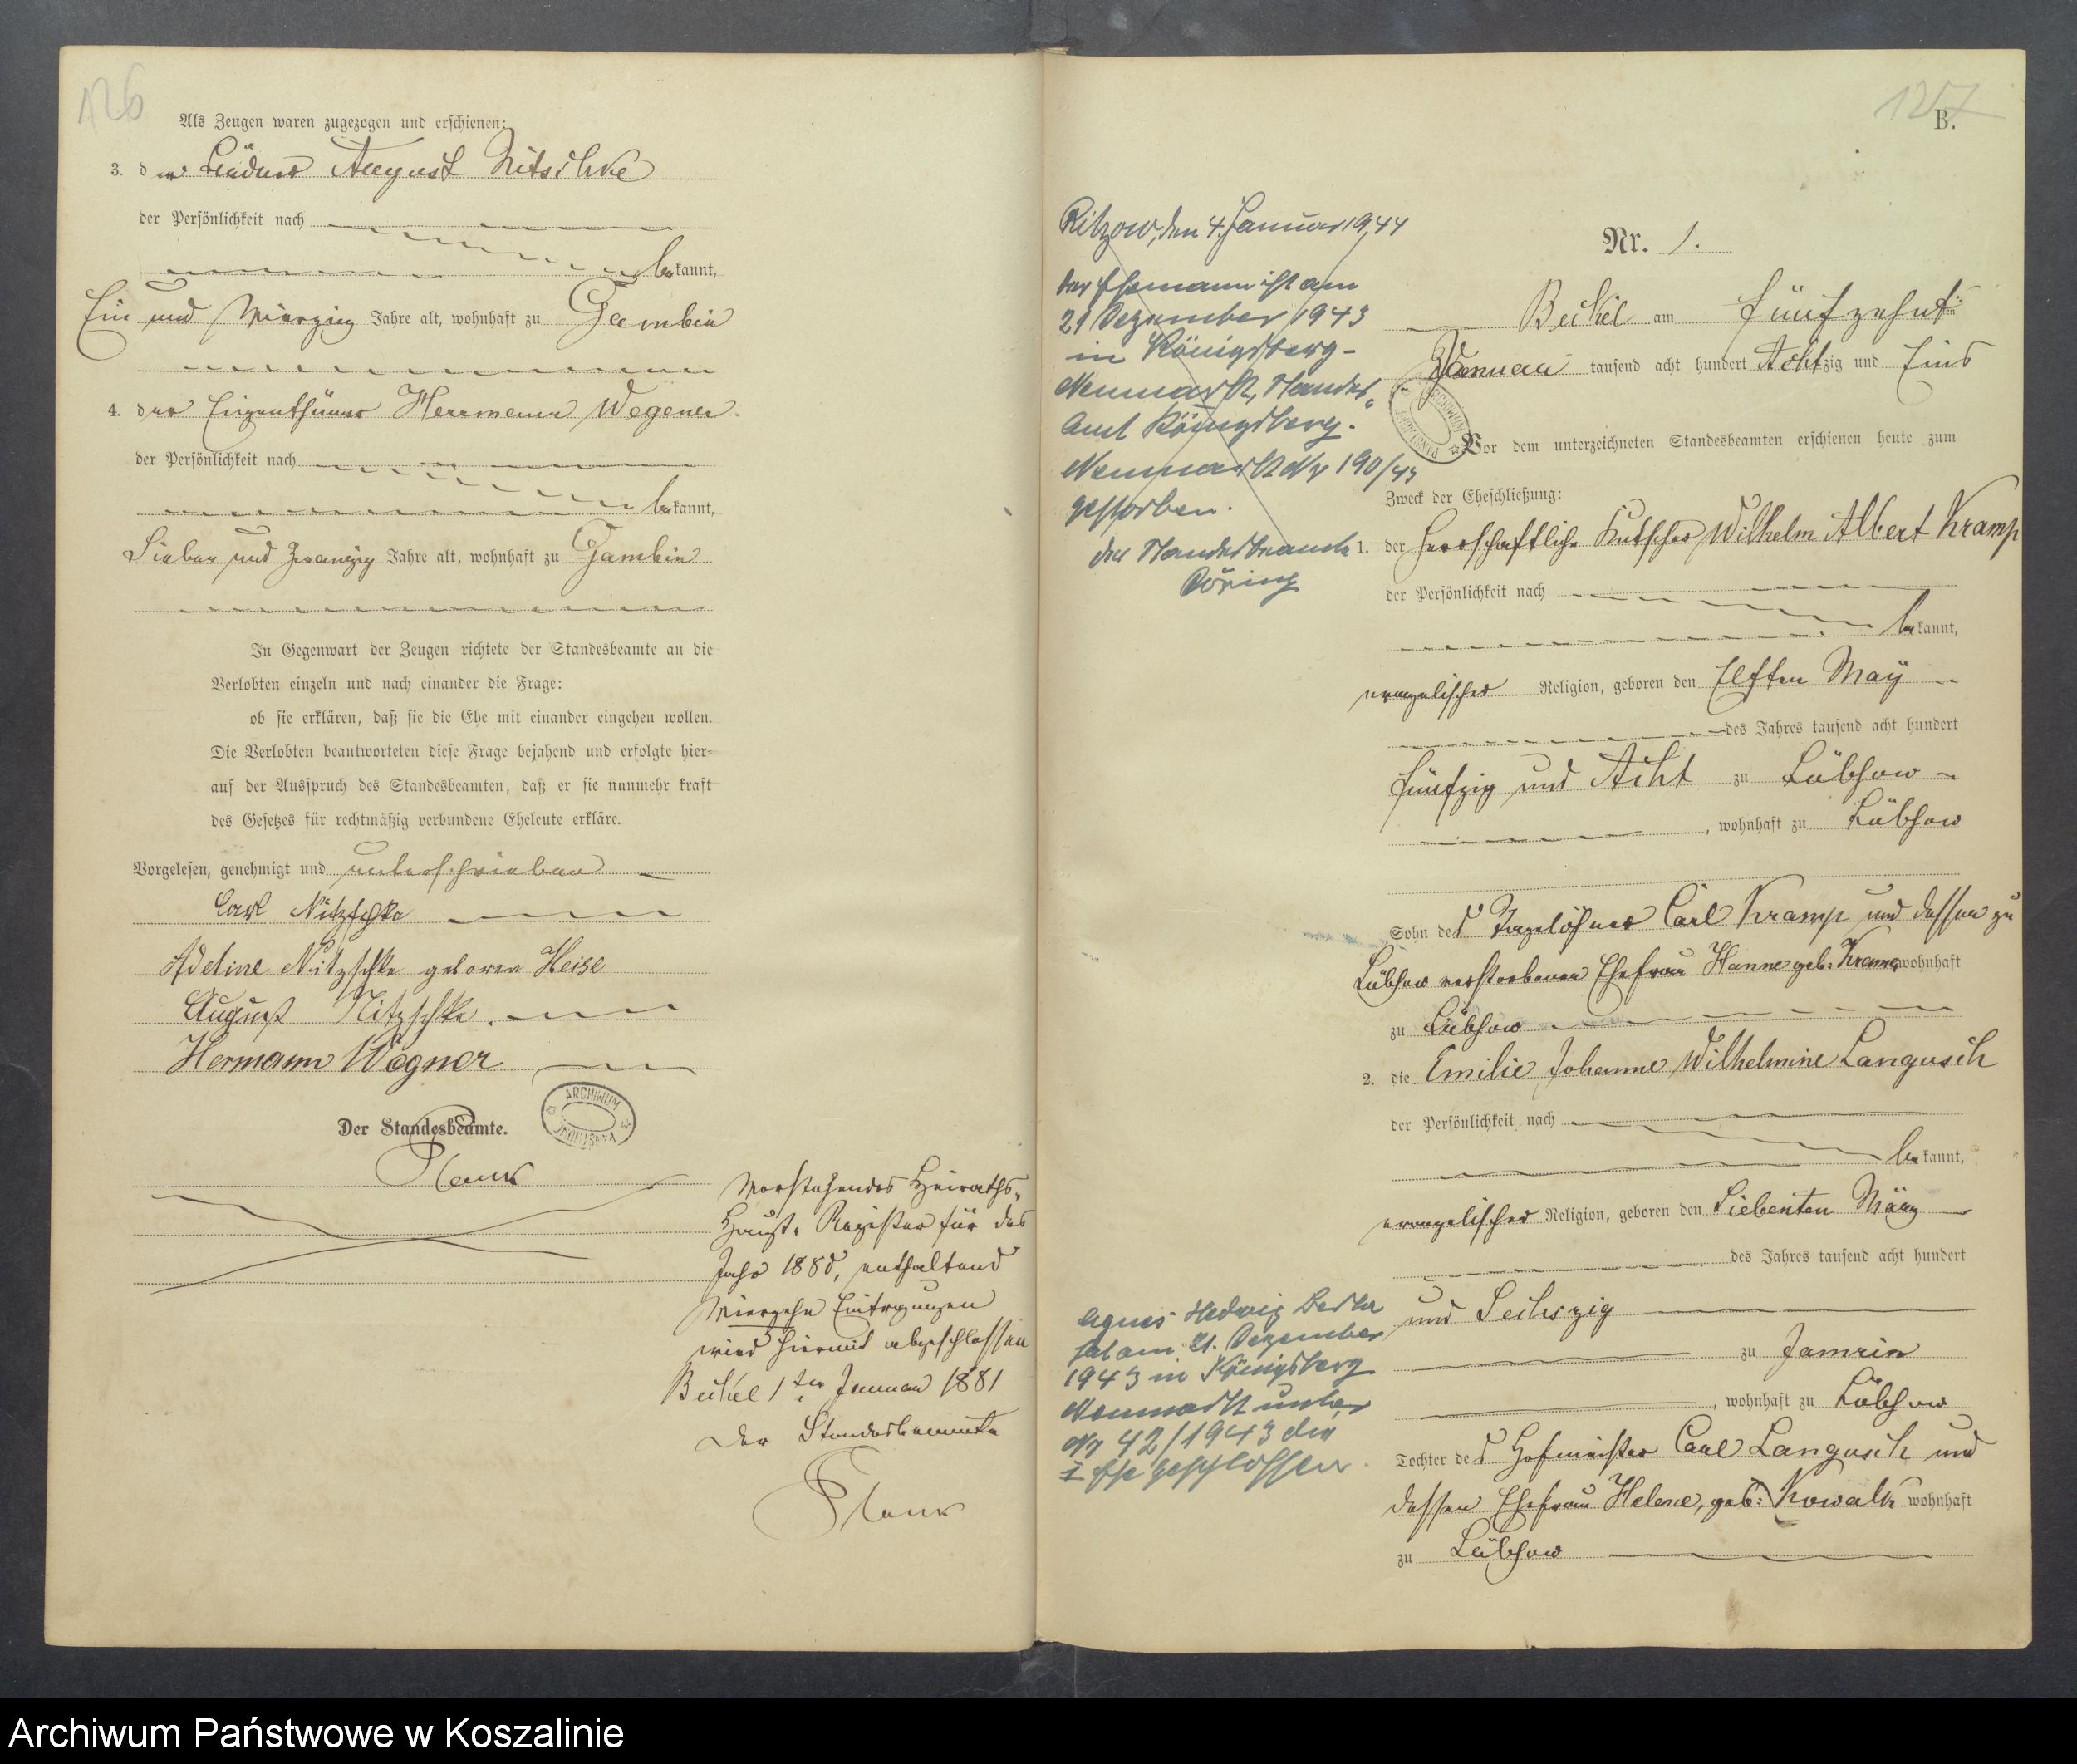 126
Als Zeugen waren zugezogen und erschienen:
3. der August Nitschke
der Persönlichkeit nach
bekannt,
Ein und Vierzig Jahre alt, wohnhaft zu Gambin
4. der Eigenthümer Herrmann Wegener.
der Persönlichkeit nach
bekannt,
Sieben und Zwanzig Jahre alt, wohnhaft zu Gambin
In Gegenwart der Zeugen richtete der Standesbeamte an die
Verlobten einzeln und nach einander die Frage:
ob sie erklären, daß sie die Ehe mit einander eingehen wollen.
Die Verlobten beantworteten diese Frage bejahend und erfolgte hier=
auf der Ausspruch des Standesbeamten, daß er sie nunmehr kraft
des Gesetzes für rechtmäßig verbundene Eheleute erkläre.
Vorgelesen, genehmigt und unterschrieben
Carl Nitzschke
Adeline Nitzschke geboren Heise
August Nitzschke.
Hermann Wegner
Der Standesbeamte.
ARCHIWUM
Vorstehendes Heiraths-
Haupt-Register für das
Jahr 1880, enthaltend
Vierzehn Eintragungen
wird hiermit abgeschlossen
Beckel 1ten Januar 1881
Der Standesbeamte
127
B.
Nr. 1.
Beckel am fünfzehnten
Januar tausend acht hundert Achtzig und Eins
Vor dem unterzeichneten Standesbeamten erschienen heute zum
Zweck der Eheschließung:
1. der herrschaftliche Kutscher Wilhelm Albert Kramp
der Persönlichkeit nach
bekannt,
evangelischer Religion, geboren den Elften May
des Jahres tausend acht hundert
fünfzig und Acht zu Lübzow
, wohnhaft zu Lübzow
Sohn des Tagelöhner Carl Kramp und dessen zu
Lübzow verstorbenen Ehefrau Hanne geb: wohnhaft
zu Lübzow
2. die Emilie Johanne Wilhelmine Langusch
der Persönlichkeit nach
bekannt,
evangelischer Religion, geboren den Siebenten März
des Jahres tausend acht hundert
und Sechszig
zu Jamrin
, wohnhaft zu Lübzow
Tochter des Hofmeister Carl Langusch und
dessen Ehefrau Helene, geb: Kowalk wohnhaft
zu Lübzow
Ritzow, den 4. Januar 1944
Der Ehemann ist am
21 Dezember 1943
in Königsberg-
Neumark, Standes-
amt Königsberg-
Neumark Nr 190/43
gestorben.
Der Standesbeamte
Döring
Agnes Hedwig Bertha
hat am 21. Dezember
1943 in Königsberg
Neumark unter
Nr 42/1943 die
I Ehe geschlossen.
Archiwum Państwowe w Koszalinie